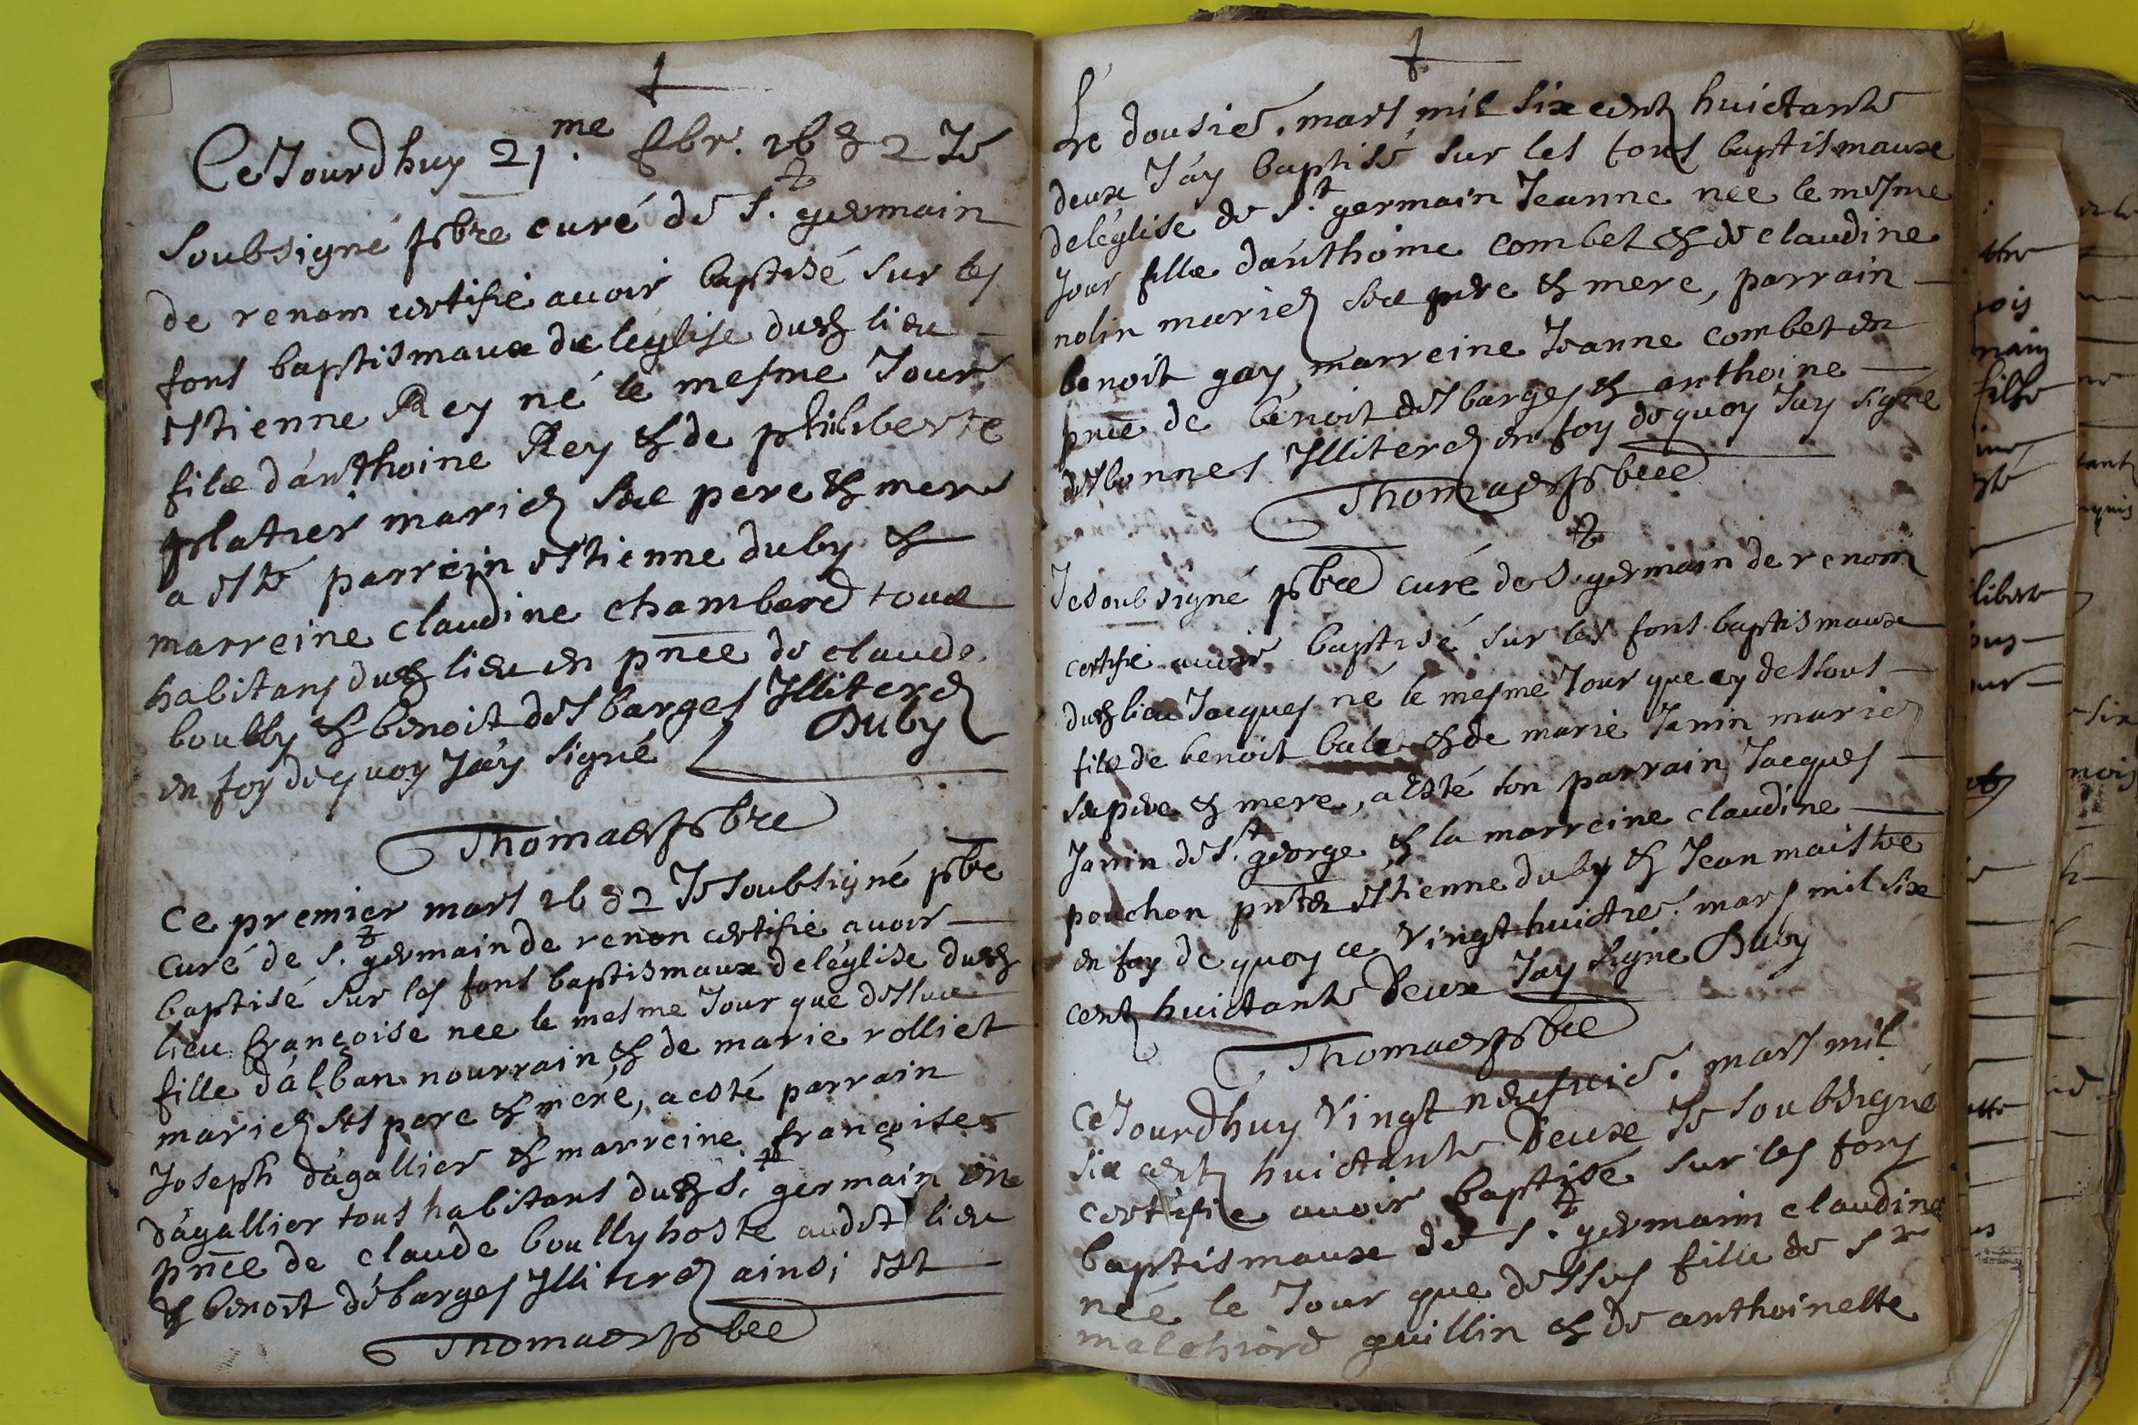 Ce Jourdhuy 21.me fbr. 1682 Je
soubsigné pbre curé de St. germain
de renom certifie avoir baptisé sur les
fons baptismaux de léglise dud lieu
estienne Rey né le mesme Jour
filz dánthoine Rey & de philiberte
platier mariez ses pere & mere
a esté parrein estienne duby &
marreine claudine chambard tous
habitans dud lieu en pnce de claude
boully & benoit desbarges Illiterez
en foy dequoy J'ay signé Duby
Thomas pbre
Ce premier mars 1682 Je soubsigné pbre
curé de St. germain de renon certifie avoir
baptisé sur les fons baptismaux de léglise dud
lieu françoise nee le mesme Jour que dessus
fille dálban nourrain & de marie rolliet
mariez ses pere & mere, a esté parrain
Joseph dágallier & marreine françoise
dágallier tous habitans dud St. germain en
pnce de claude boully hoste audit lieu
& benoit débarges Illiterez ainsi est
Thomas pbre
Le dousie. mars mil six centz huictante
deux J'ay baptisé sur les fons baptismaux
de léglise de St. germain Jeanne nee le mesme
Jour fille dánthoine combet & de claudine
nolin mariez ses pere & mere, parrain
benoit gay, marreine Jeanne combet en
pnce de benoit desbarges & anthoine
desbonnes Illiterez en foy de quoy Jay signé
Thomas pbre
Je soubsigné pbre curé de St. germain de renom
certifie avoir baptisé sur les fons baptismaux
dud lieu Jacques né le mesme Jour que cy dessous
filz de benoit & de marie Janin mariez
ses pere & mere, a esté son parrain Jacques
Janin de St. george & la marreine claudine
pouchon pntz estienne duby & Jean maistre
en foy de quoy ce Vingt huictie. mars mil six
centz huictante Deux Jay signé Duby
Thomas pbre
Ce Jourdhuy Vingt neufvie. mars mil
six centz huictante Deux Je soubsigné
certifie avoir baptisé sur les fons
baptismaux de St. germain claudine
née le Jour que dessus fille de Sr
malchiord guillin & de anthoinette